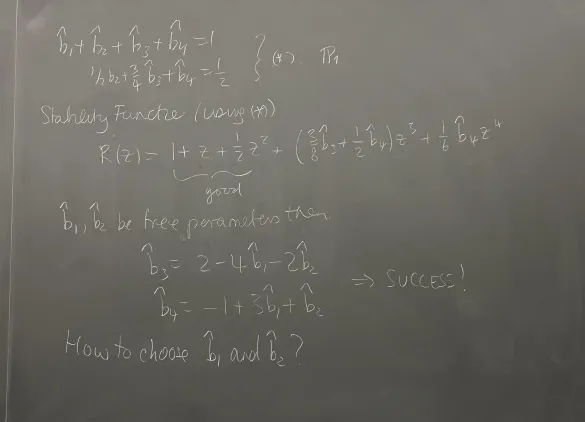 b̂₁ + b̂₂ + b̂₃ + b̂₄ = 1
1/2 b₂ + 3/4 b̂₃ + b̂₄ = 1/2 } (*).
Stability Function (using (*))
R(z) = 1 + z + 1/2 z² + (3/8 b̂₃ + 1/2 b̂₄) z³ + 1/6 b̂₄ z⁴
good
b̂₁, b̂₂ be free parameters then
b̂₃ = 2 - 4b̂₁ - 2b̂₂
b̂₄ = -1 + 3b̂₁ + b̂₂ ⇒ SUCCESS!
How to choose b̂₁ and b̂₂?